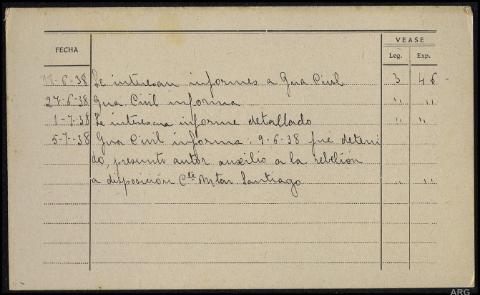 FECHA
VEASE
Leg. Exp.
-6-38 Se interesan informes a Gua Civil 3 46
27-6-38 Gua Civil informa " "
1-7-38 Se interesa informe detallado " "
5-7-38 Gua Civil informa: 9-6-38 fué deteni
do, presunto autor auxilio a la rebelión
a disposición Cte Mtar Santiago " "
ARG